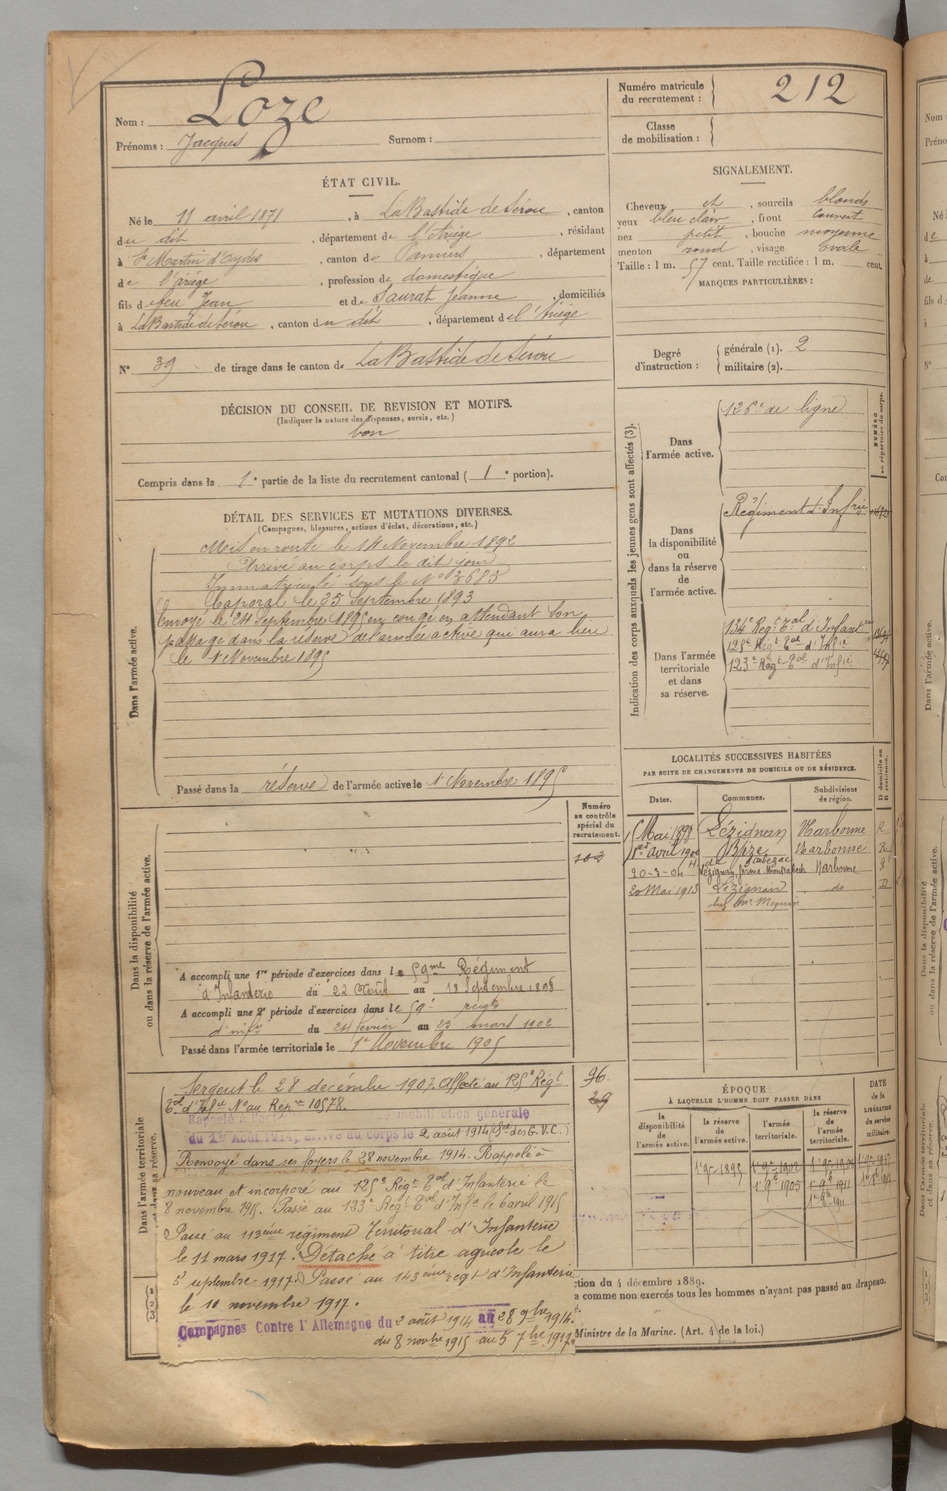 Nom : Loze
Prénoms : Jacques Surnom :
Numéro matricule du recrutement : 212
Classe de mobilisation :
ÉTAT CIVIL.
Né le 11 avril 1871, à LaBastide de Sérou, canton
du dit, département de l'Ariège, résidant
à St Martin d'Oydes, canton de Pamiers, département
de l'ariège, profession de domestique
fils de feu Jean et de Saurat Jeanne, domiciliés
à LaBastide de Sérou, canton du dit, département de l'Ariège
N° 39 de tirage dans le canton de LaBastide de Sérou
SIGNALEMENT.
Cheveux et, sourcils blonds
yeux bleu clair, front couvert
nez petit, bouche moyenne
menton rond, visage ovale
Taille : 1 m. 57 cent. Taille rectifiée : 1 m. cent.
MARQUES PARTICULIÈRES :
Degré d'instruction : générale (1). 2
militaire (2).
DÉCISION DU CONSEIL DE REVISION ET MOTIFS.
(Indiquer la nature des dispenses, sursis, etc.)
bon
Compris dans la 1e partie de la liste du recrutement cantonal (1e portion).
DÉTAIL DES SERVICES ET MUTATIONS DIVERSES.
(Campagnes, blessures, actions d'éclat, décorations, etc.)
Dans l'armée active.
Mis en route le 14 Novembre 1892
Arrivé au corps le dit jour
Immatriculé sous le N° 3685
Caporal le 25 Septembre 1893
Envoyé le 24 Septembre 1895 en congé en attendant son
passage dans la réserve de l'armée active qui aura lieu
le 1 Novembre 1895
Passé dans la réserve de l'armée active le 1 Novembre 1895
Indication des corps auxquels les jeunes gens sont affectés (3).
NUMÉRO au répertoire du corps.
Dans l'armée active.
126e de ligne
Dans la disponibilité ou dans la réserve de l'armée active.
Régiment d'Infrie
Dans l'armée territoriale et dans sa réserve.
134e Regt Tal d'Infant
125e Regt Tal d'Infie
123e Regt Tal d'Infie
LOCALITÉS SUCCESSIVES HABITÉES
PAR SUITE DE CHANGEMENTS DE DOMICILE OU DE RÉSIDENCE.
Dates. Communes. Subdivisions de région. D domicile ou R résidence.
5 Mai 1898 Lézignan Narbonne R
1er avril 1900 Bize Narbonne
20-3-04 Lézignan, ferme Narbonne
20 Mai 1913 Lézignan do D
Dans la disponibilité ou dans la réserve de l'armée active.
Numéro au contrôle spécial du recrutement.
A accompli une 1re période d'exercices dans le 59me Régiment
d'Infanterie du 22 Août au 18 Septembre 1898
A accompli une 2e période d'exercices dans le 59e regt
d'infie du 24 février au 23 mars 1902
Passé dans l'armée territoriale le 1e Novembre 1905
Dans l'armée territoriale et dans sa réserve.
Sergent le 28 décembre 1907. Affecté au 125e Régt
Tal d'Infie N° au Rép re 10578.
Rappelé à mobilisation générale
du 1er Août 1914, arrivé au corps le 2 août 1914 (St des G.V.C.)
Renvoyé dans ses foyers le 28 novembre 1914. Rappelé à
nouveau et incorporé au 125e Regt Tal d'Infanterie le
8 novembre 1915. Passé au 123e Regt Tal d'Infie le 6 avril 1915
Passé au 113ème régiment Territorial d'Infanterie
le 11 mars 1917. Détaché à titre agricole le
5 septembre 1917. Passé au 143ème regt d'Infanterie
le 10 novembre 1917.
Campagnes Contre l'Allemagne du 2 août 1914 au 28 9bre 1914.
du 8 novbre 1915 au 5 7bre 1917.
96
29
ÉPOQUE
À LAQUELLE L'HOMME DOIT PASSER DANS
la disponibilité de l'armée active. la réserve de l'armée active. l'armée territoriale. la réserve de l'armée territoriale.
DATE de la LIBÉRATION du service militaire.
1e 9e 1895
1e 9e 1905
1e 9e 1911
tion du 4 décembre 1889.
a comme non exercés tous les hommes n'ayant pas passé au drapeau.
Ministre de la Marine. (Art. 4 de la loi.)